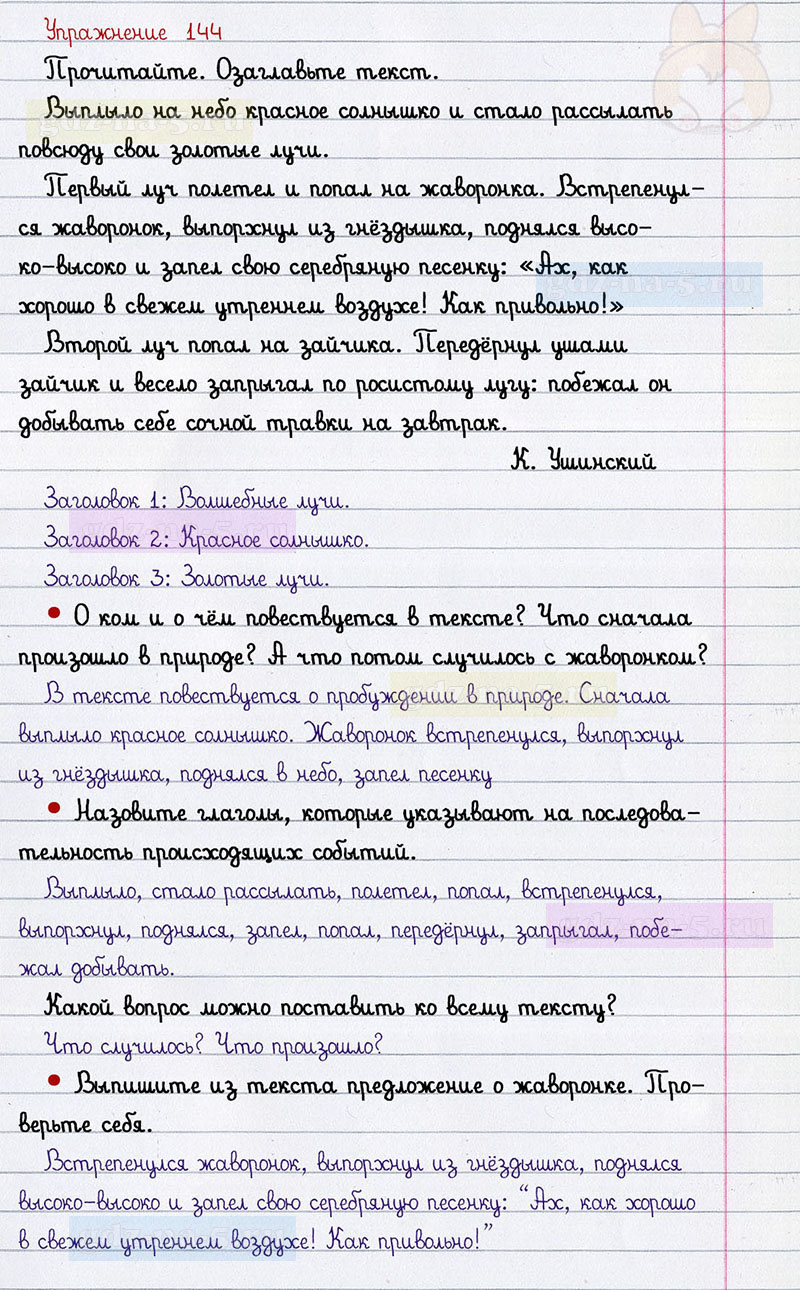 Упражнение 144
Прочитайте. Озаглавьте текст.
Выплыло на небо красное солнышко и стало рассылать
повсюду свои золотые лучи.
Первый луч полетел и попал на жаворонка. Встрепенул-
ся жаворонок, выпорхнул из гнёздышка, поднялся высо-
ко-высоко и запел свою серебряную песенку: «Ах, как
хорошо в свежем утреннем воздухе! Как привольно!»
Второй луч попал на зайчика. Передёрнул ушами
зайчик и весело запрыгал по росистому лугу: побежал он
добывать себе сочной травки на завтрак.
К. Ушинский
Заголовок 1: Волшебные лучи.
Заголовок 2: Красное солнышко.
Заголовок 3: Золотые лучи.
• О ком и о чём повествуется в тексте? Что сначала
произошло в природе? А что потом случилось с жаворонком?
В тексте повествуется о пробуждении в природе. Сначала
выплыло красное солнышко. Жаворонок встрепенулся, выпорхнул
из гнёздышка, поднялся в небо, запел песенку
• Назовите глаголы, которые указывают на последова-
тельность происходящих событий.
Выплыло, стало рассылать, полетел, попал, встрепенулся,
выпорхнул, поднялся, запел, попал, передёрнул, запрыгал, побе-
жал добывать.
Какой вопрос можно поставить ко всему тексту?
Что случилось? Что произошло?
• Выпишите из текста предложение о жаворонке. Про-
верьте себя.
Встрепенулся жаворонок, выпорхнул из гнёздышка, поднялся
высоко-высоко и запел свою серебряную песенку: “Ах, как хорошо
в свежем утреннем воздухе! Как привольно!”